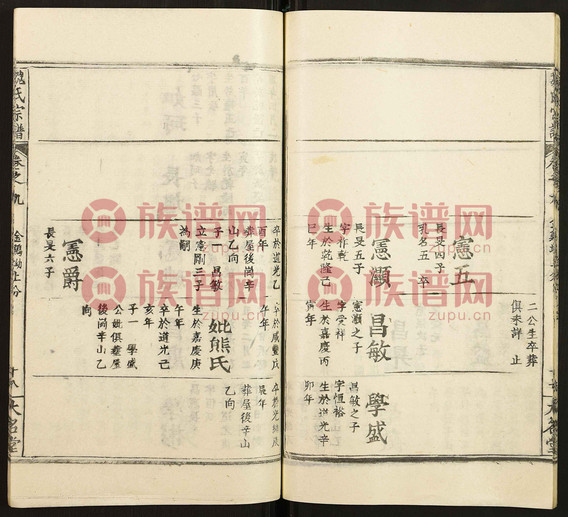 憲五
長旻四子
乳名五 卒
二公生卒葬
俱未詳 止
憲灝
長旻五子
字作乾
生於乾隆己
巳年
昌敏
憲灝之子
字受祥
生於嘉慶丙
寅年
學盛
昌敏之子
字恒裕
生於道光辛
卯年
卒於道光乙
酉年
葬屋後崗辛
山乙向
子一 昌敏
立憲剛三子
為嗣
卒於咸豐戊
午年
妣熊氏
生於嘉慶庚
午年
卒於道光己
亥年
子一 學盛
公妣俱葬屋
後崗辛山乙
向
卒於光緒庚
辰年
葬屋後辛山
乙向
憲爵
長旻六子
魏氏宗譜
卷之九
金鵝坳上分
十八
大名堂
族谱网
zupu.cn